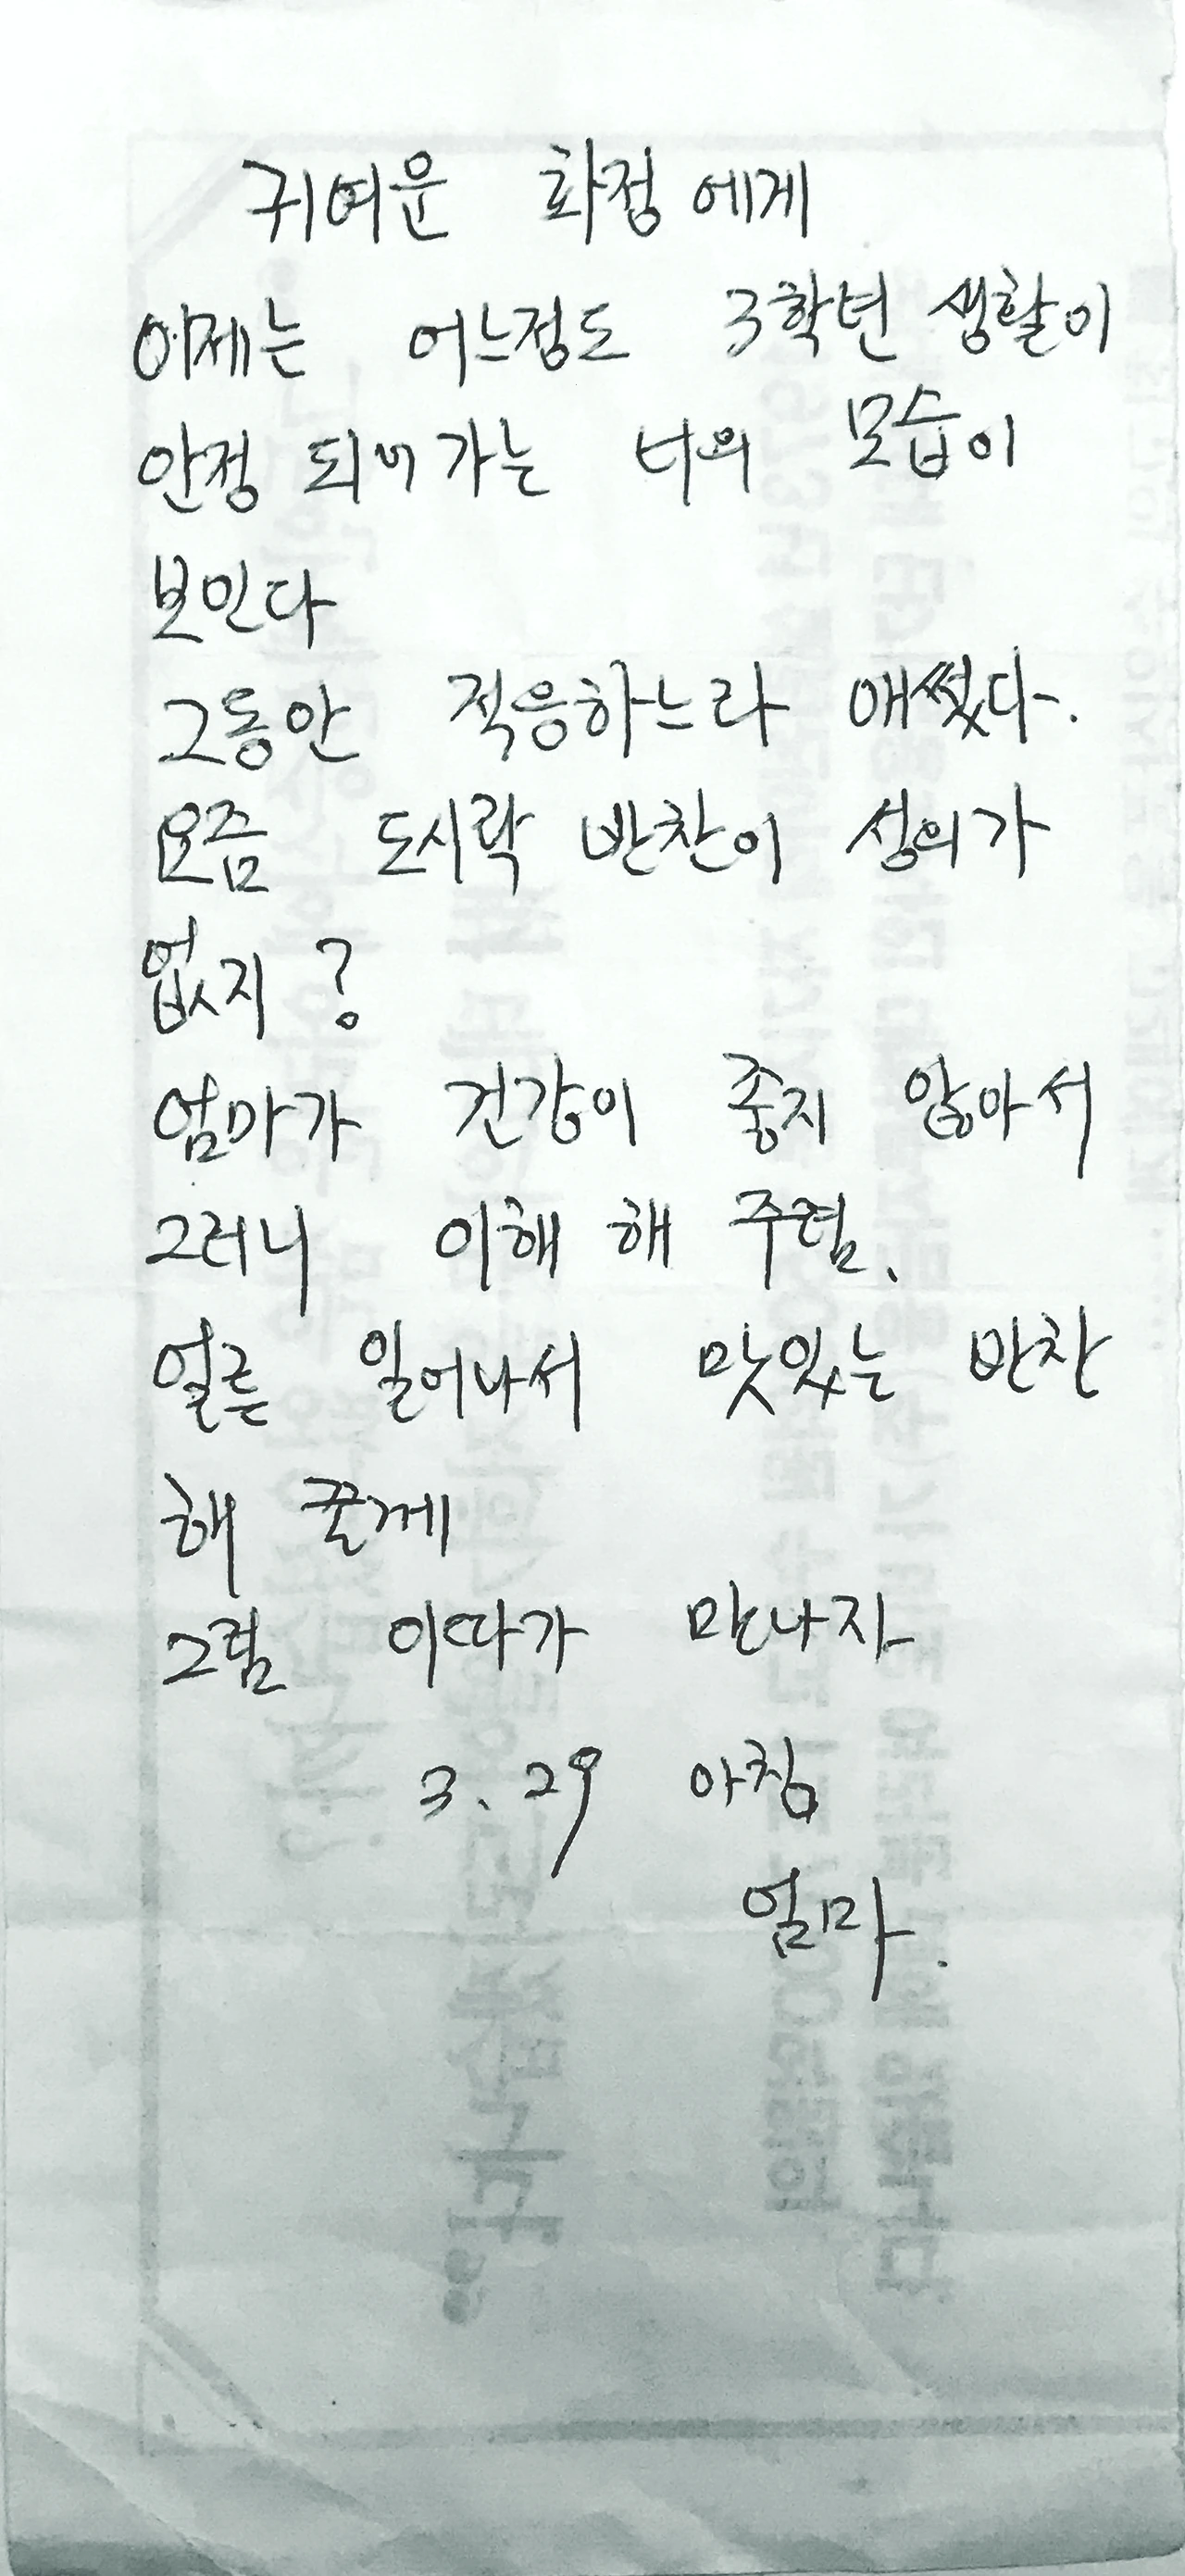 귀여운 화정에게
이제는 어느정도 3학년 생활이
안정 되어가는 너의 모습이
보인다
그동안 적응하느라 애썼다.
요즘 도시락 반찬이 성의가
없지?
엄마가 건강이 좋지 않아서
그러니 이해 해 주렴.
얼른 일어나서 맛있는 반찬
해 줄께
그럼 이따가 만나자
3. 29 아침
엄마.